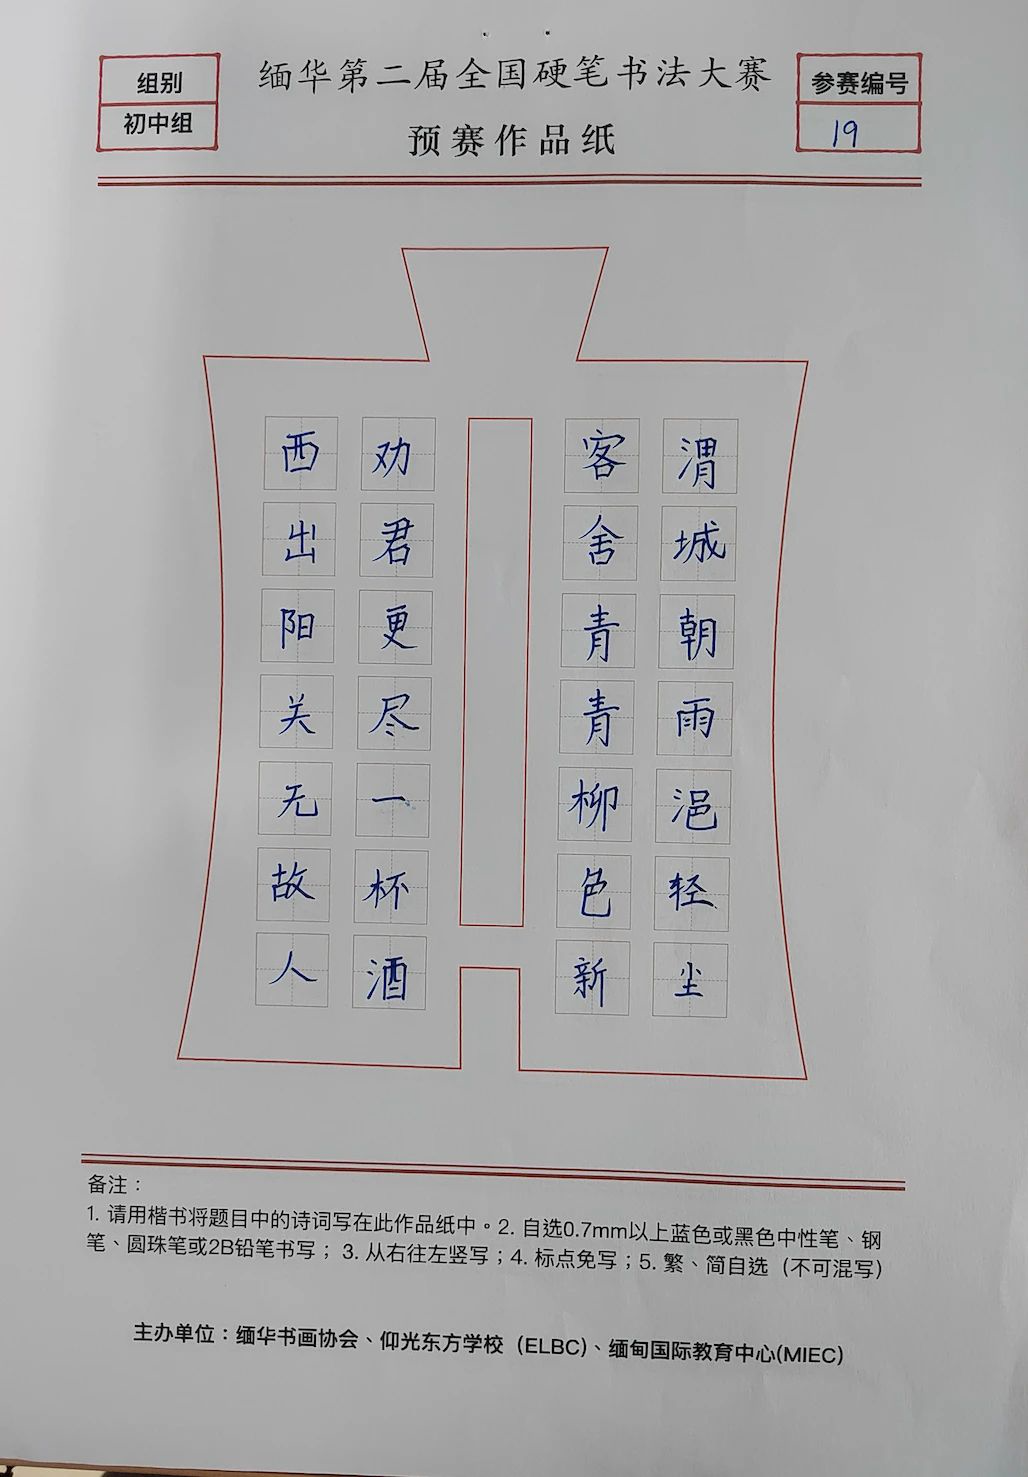 缅华第二届全国硬笔书法大赛
预赛作品纸
组别
初中组
参赛编号
19
渭城朝雨浥轻尘
客舍青青柳色新
劝君更尽一杯酒
西出阳关无故人
备注：
1. 请用楷书将题目中的诗词写在此作品纸中。2. 自选0.7mm以上蓝色或黑色中性笔、钢
笔、圆珠笔或2B铅笔书写； 3. 从右往左竖写；4. 标点免写；5. 繁、简自选（不可混写）
主办单位：缅华书画协会、仰光东方学校（ELBC）、缅甸国际教育中心(MIEC）